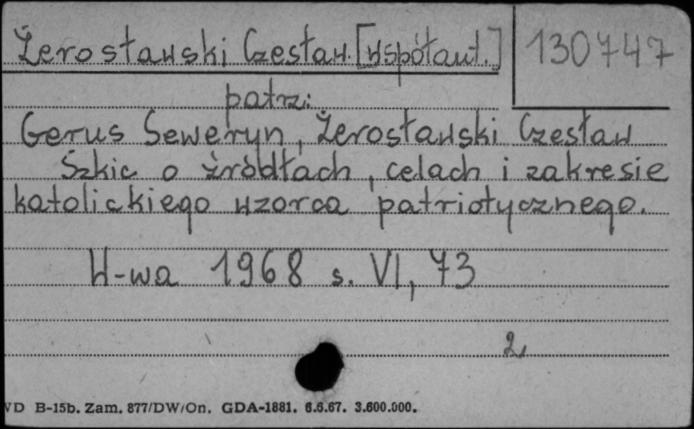 Żerosławski Czesław. [współaut.]
130747
patrz:
Gerus Seweryn, Żerosławski Czesław
Szkic o źródłach, celach i zakresie
katolickiego wzorca patriotycznego.
W-wa 1968 s. VI, 73
2
WD B-15b. Zam. 877/DW/On. GDA-1881. 6.6.67. 3.600.000.